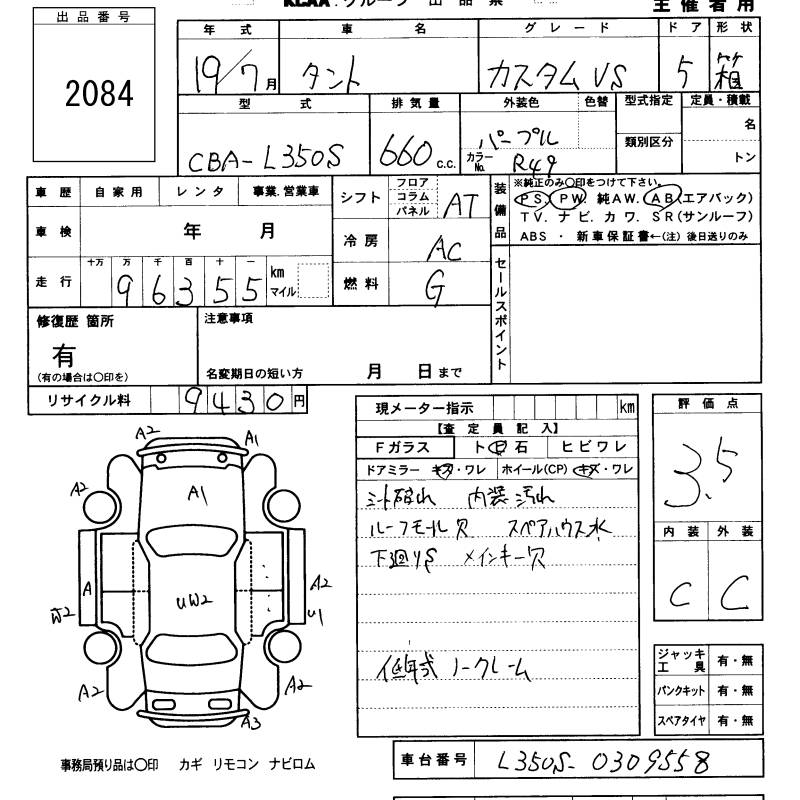 出品番号
2084
KCAA.グループ 出品票
主催者用
年式 車名 グレード ドア 形状
19/7月 タント カスタム VS 5 箱
型式 排気量 外装色 色替 型式指定 定員・積載
CBA-L350S 660 c.c. パープル
カラーNo. R49
類別区分
名
トン
車歴 自家用 レンタ 事業.営業車
車検 年 月
走行 十万 万 千 百 十 一
96355 km
マイル
シフト フロア コラム パネル AT
冷房 AC
燃料 G
装備品
※純正のみ〇印をつけて下さい。
PS. PW. 純AW. AB(エアバック)
TV. ナビ. カワ. SR(サンルーフ)
ABS ・ 新車保証書←(注) 後日送りのみ
セールスポイント
修復歴 箇所
有
(有の場合は〇印を)
注意事項
名変期日の短い方 月 日まで
リサイクル料 9430円
現メーター指示 km
【査定員記入】
Fガラス トビ石 ヒビワレ
ドアミラー キズ・ワレ ホイール(CP) キズ・ワレ
シート破れ 内装汚れ
ルーフモール欠 スペアハウス水
下廻りS メインキー欠
低年式 ノークレーム
評価点
3.5
内装 外装
C C
ジャッキ工具 有・無
パンクキット 有・無
スペアタイヤ 有・無
A2 A1
A2 A1
A A2
W2 UW2 U1
A2 A2
A3
事務局預り品は〇印 カギ リモコン ナビロム
車台番号 L350S-0309558